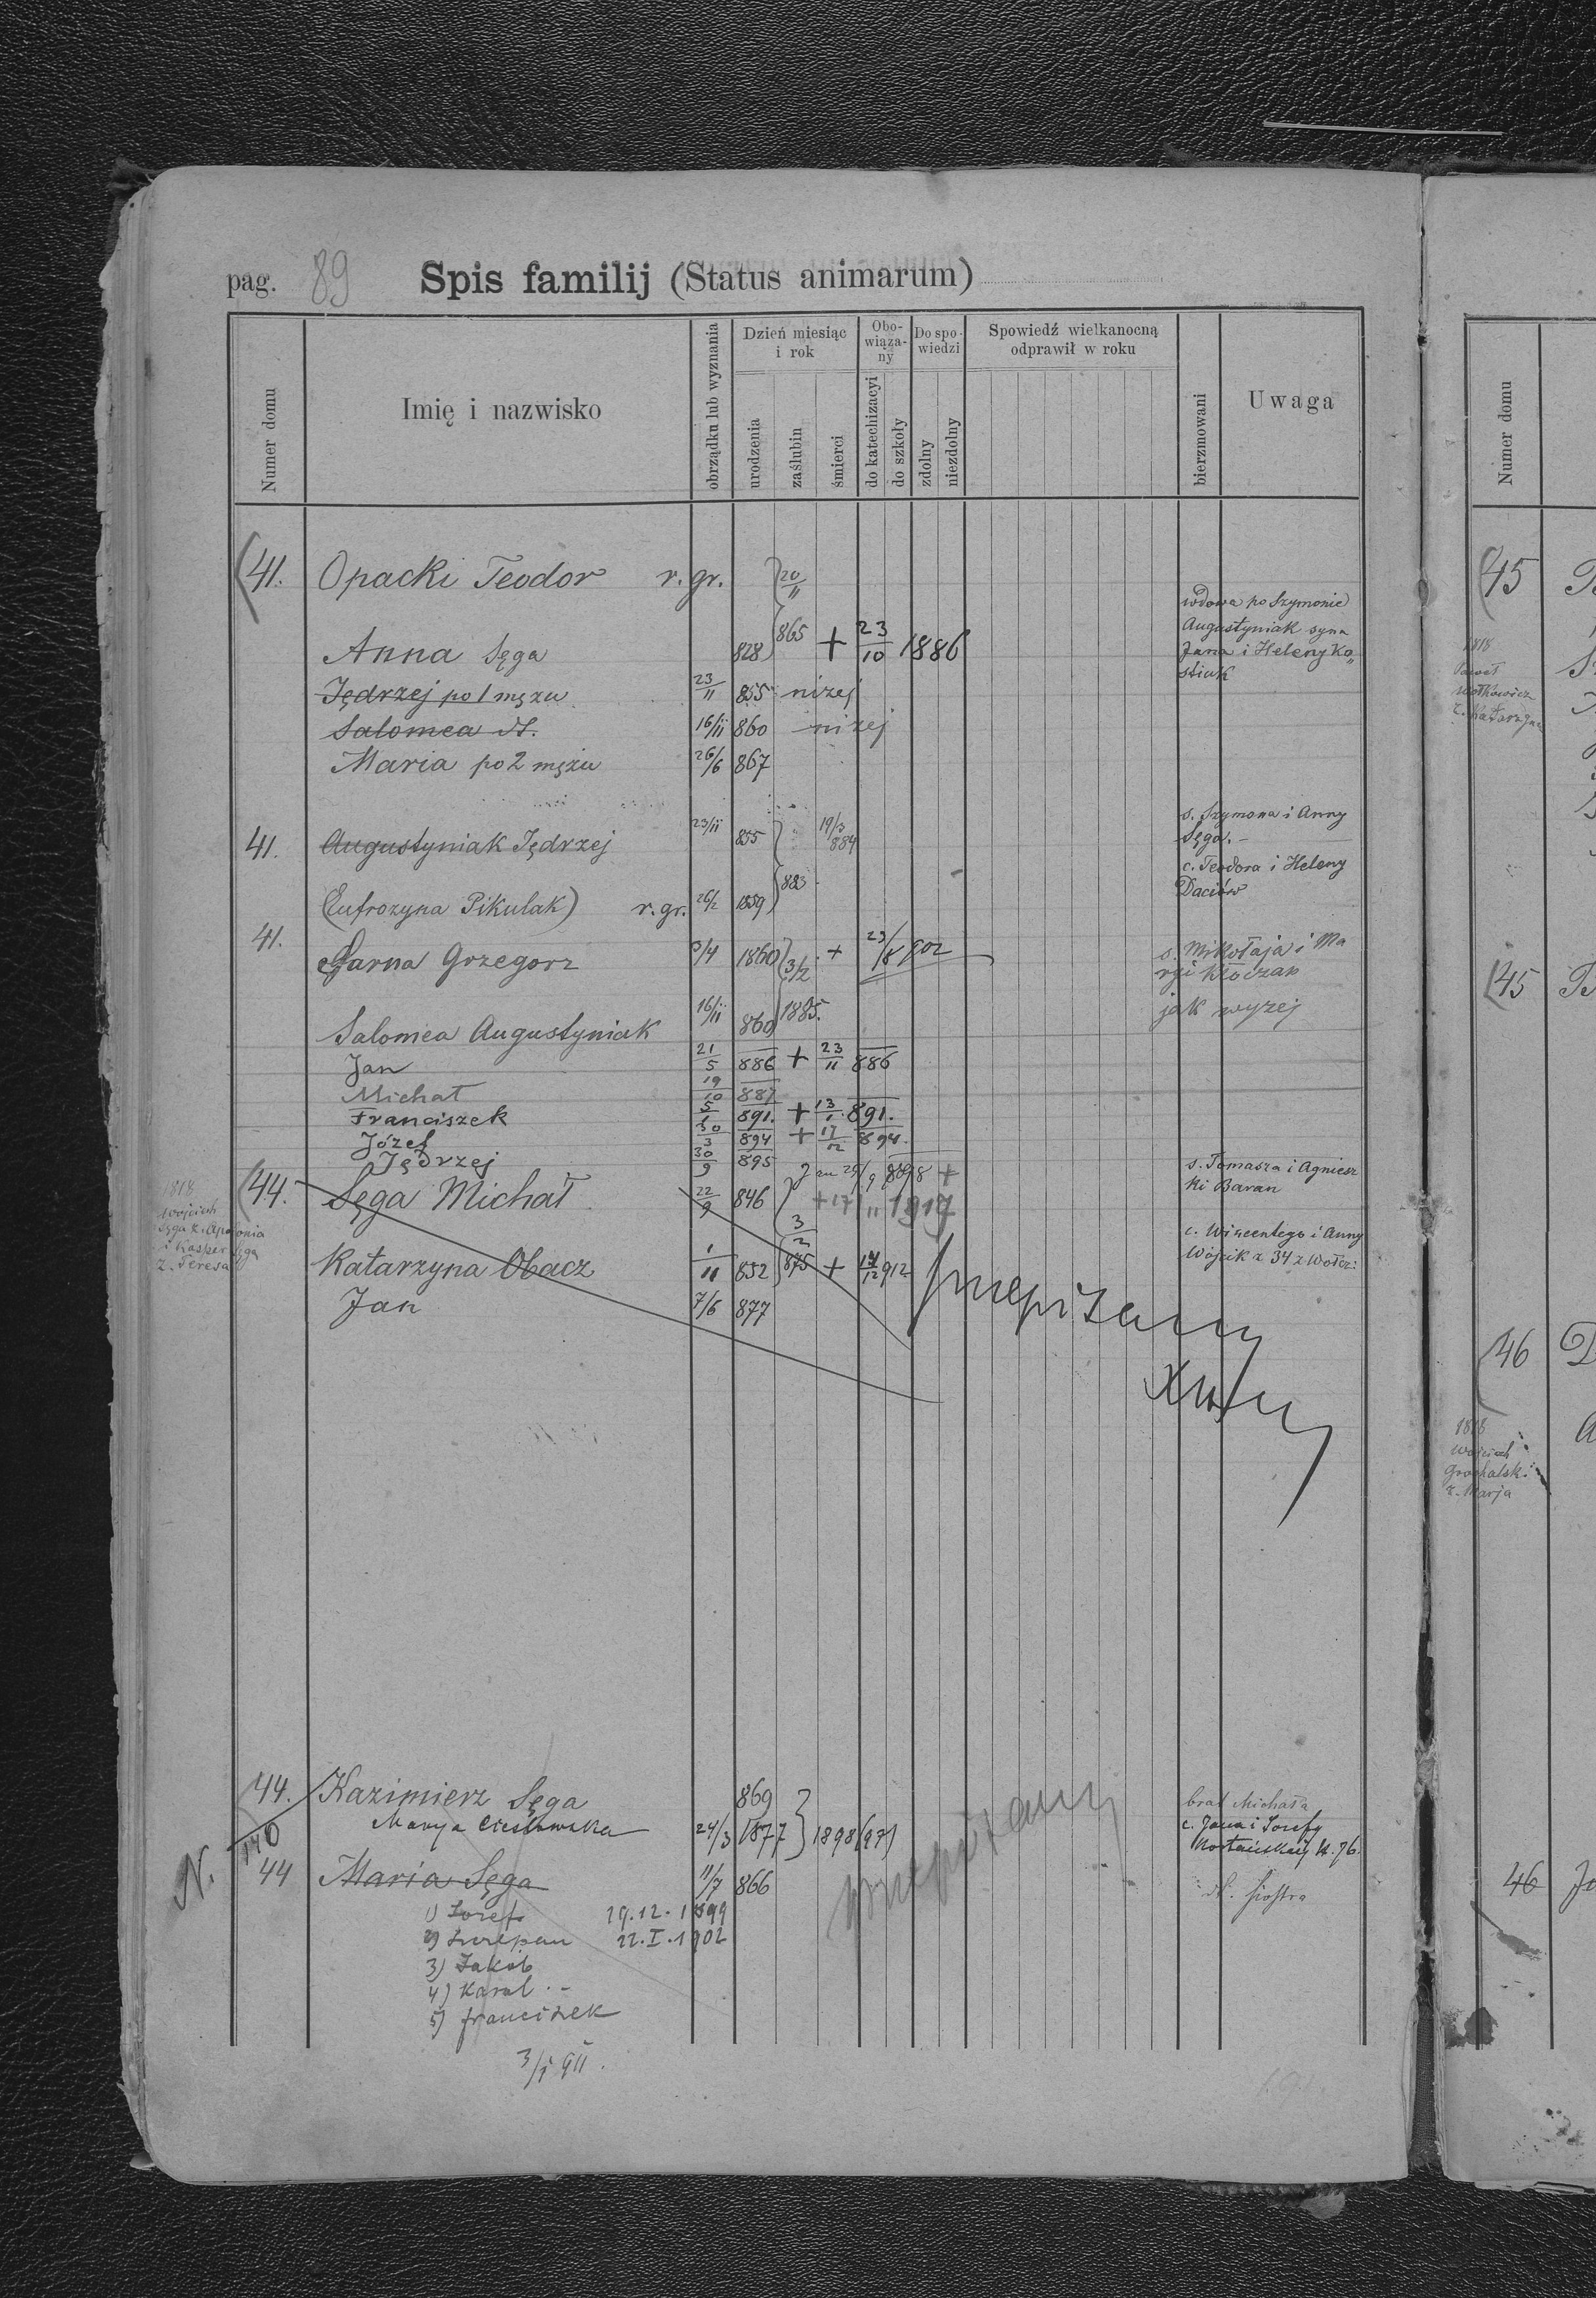 pag. 89 Spis familij (Status animarum)
Numer domu
Imię i nazwisko
obrządku lub wyznania
Dzień miesiąc i rok
urodzenia
zaślubin
śmierci
Obo-wiąza-ny
do katechizacyi
do szkoły
Do spo-wiedzi
zdolny
niezdolny
Spowiedź wielkanocną odprawił w roku
bierzmowani
Uwaga
Numer domu
41. Opacki Teodor r. gr. 20/11
wdowa po Szymonie
Augustyniak syna
Jana i Heleny Ko„
stiuk
Anna Sęga 828 865 + 23/10 1886
Jędrzej po 1 mężu 23/11 855 niżej
Salomea dt. 16/11 860 niżej
Maria po 2 mężu 26/6 867
41. Augustyniak Jędrzej 23/11 855 19/3 884
s. Szymona i Anny
Sęga.–
883
(Eufrozyna Pikulak) r. gr. 26/2 1859
c. Teodora i Heleny
Daciów
41. Garna Grzegorz 3/4 1860 3/2 + 23/8 902
s. Mikołaja i Ma
ryi Kloczan
Salomea Augustyniak 16/11 860 1885. jak wyżej
Jan 21/5 886 + 23/11 886
Michał 19/10 887
Franciszek 5/1 891. + 13/1 891.
Józef 30/3 894 + 17/12 894.
Jędrzej 30/9 895 Jan 29/9 898 +
44. Sęga Michał 22/9 846 + 17/11 1917
s. Tomasza i Agniesz
ki Baran
1818
Wojciech
Sęga ż. Apolonia
i Kasper Sęga
ż. Teresa
3/2 875
Katarzyna Obacz 1/11 852 + 14/12 912
c. Wincentego i Anny
Wójcik z 34 z Wołcz:
Jan 7/6 877
przepisany
44. Kazimierz Sęga 869 brat Michała
N. 140 Marya Cieślawska 24/3 1877 1898 (97)
c. Jana i Józefy
44 Maria Sęga 11/7 866 dt. siostra
przepisany
1) Józef 29.12.1899
2) Szczepan 22.I.1902
3) Jakób
4) Karol
5) Franciszek
3/I 911.
45
1818
Paweł
Wołkowicz
ż. Katarzyna
45
46
1818
Wojciech
Grochalski
ż. Marja
46